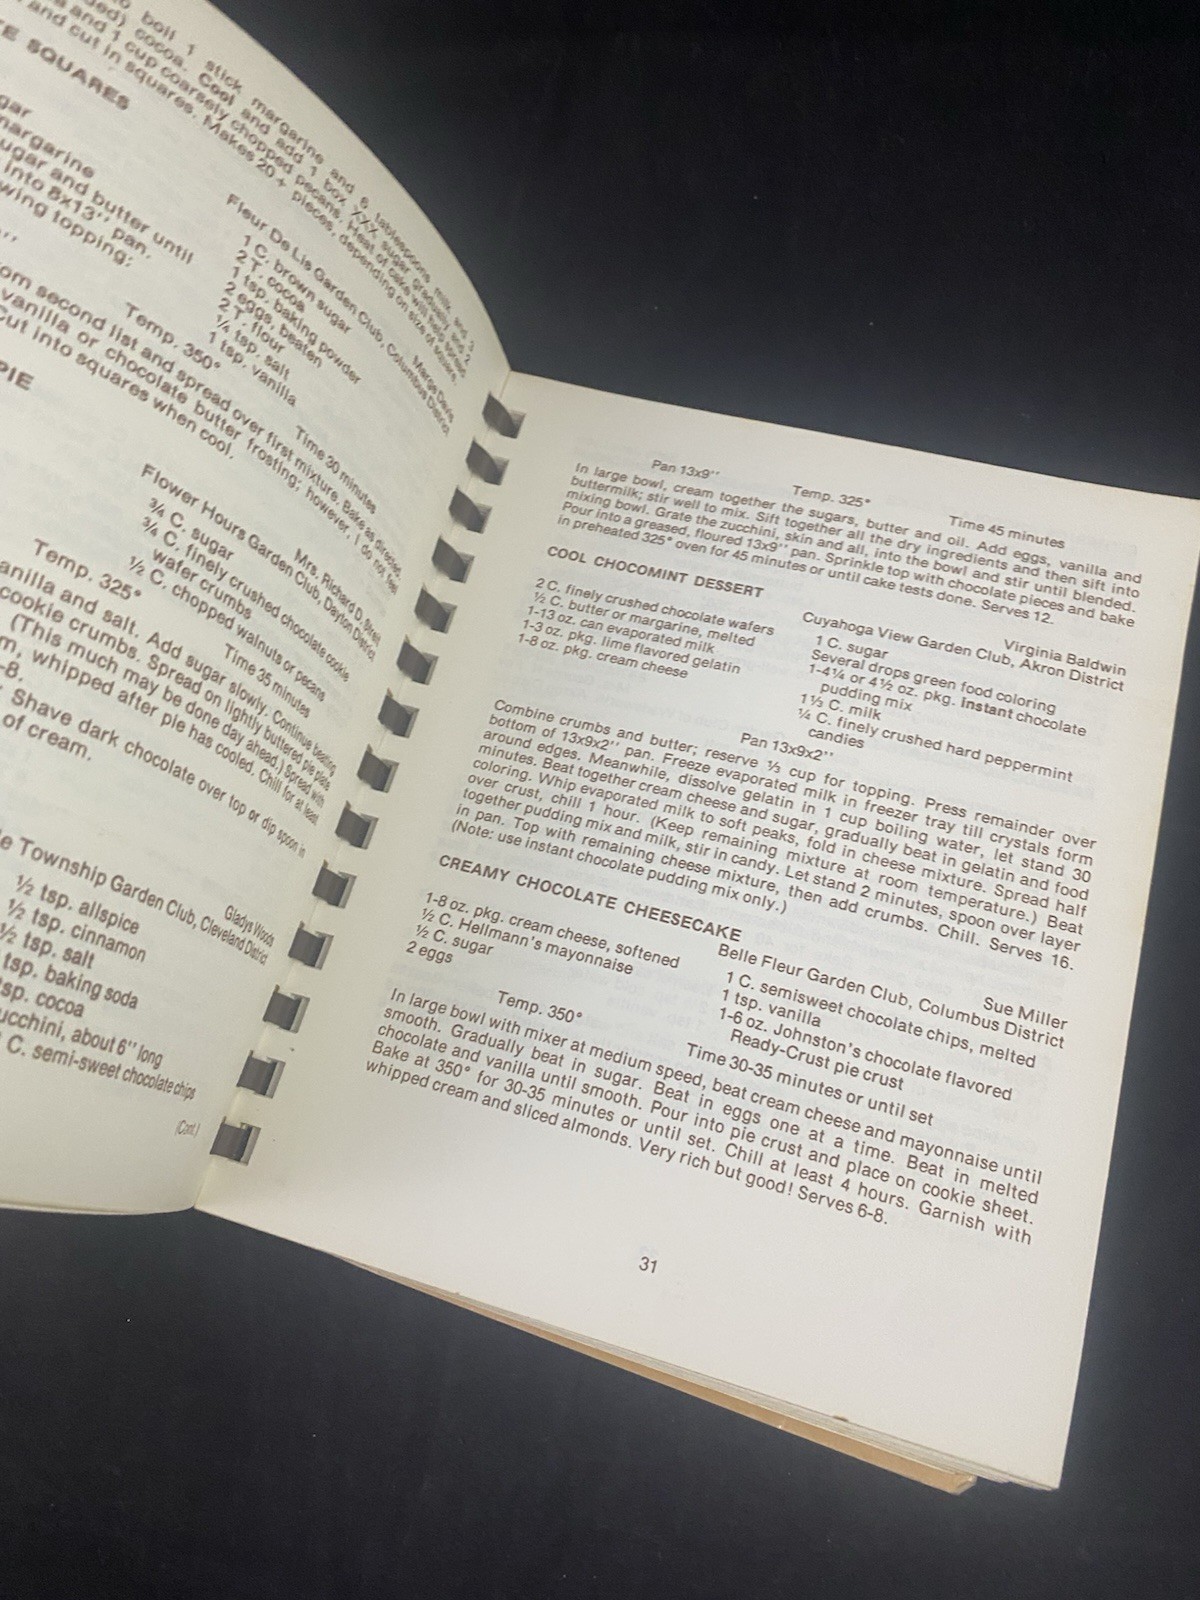 to boil 1 stick margarine and 6 tablespoons milk, and 3
cocoa. Cool and add 1 box XXX sugar gradually and 2
and 1 cup coarsely chopped pecans. Heat of cake will help spread
and cut in squares. Makes 20+ pieces, depending on size of square.
SQUARES
Marge Davis
Fleur De Lis Garden Club, Columbus District
1 C. brown sugar
2 T. cocoa
1 tsp. baking powder
2 eggs, beaten
2 T. flour
¼ tsp. salt
1 tsp. vanilla
margarine
sugar and butter until
into 8x13'' pan.
topping:
Temp. 350°
Time 30 minutes
from second list and spread over first mixture. Bake as directed.
vanilla or chocolate butter frosting; however, I do not feel
Cut into squares when cool.
PIE
Mrs. Richard D. Streit
Flower Hours Garden Club, Dayton District
¾ C. sugar
¾ C. finely crushed chocolate cookie
wafer crumbs
½ C. chopped walnuts or pecans
Temp. 325°
Time 35 minutes
vanilla and salt. Add sugar slowly. Continue beating
cookie crumbs. Spread on lightly buttered pie plate
(This much may be done day ahead.) Spread with
whipped after pie has cooled. Chill for at least
-8.
Shave dark chocolate over top or dip spoon in
of cream.
Gladys Woods
Township Garden Club, Cleveland District
½ tsp. allspice
½ tsp. cinnamon
½ tsp. salt
tsp. baking soda
tsp. cocoa
zucchini, about 6'' long
C. semi-sweet chocolate chips
(Cont.)
Pan 13x9'' Temp. 325° Time 45 minutes
In large bowl, cream together the sugars, butter and oil. Add eggs, vanilla and
buttermilk; stir well to mix. Sift together all the dry ingredients and then sift into
mixing bowl. Grate the zucchini, skin and all, into the bowl and stir until blended.
Pour into a greased, floured 13x9'' pan. Sprinkle top with chocolate pieces and bake
in preheated 325° oven for 45 minutes or until cake tests done. Serves 12.
COOL CHOCOMINT DESSERT
Virginia Baldwin
Cuyahoga View Garden Club, Akron District
2 C. finely crushed chocolate wafers
½ C. butter or margarine, melted
1-13 oz. can evaporated milk
1-3 oz. pkg. lime flavored gelatin
1-8 oz. pkg. cream cheese
1 C. sugar
Several drops green food coloring
1-4¼ or 4½ oz. pkg. Instant chocolate
pudding mix
1⅓ C. milk
¼ C. finely crushed hard peppermint
candies
Pan 13x9x2''
Combine crumbs and butter; reserve ⅓ cup for topping. Press remainder over
bottom of 13x9x2'' pan. Freeze evaporated milk in freezer tray till crystals form
around edges. Meanwhile, dissolve gelatin in 1 cup boiling water, let stand 30
minutes. Beat together cream cheese and sugar, gradually beat in gelatin and food
coloring. Whip evaporated milk to soft peaks, fold in cheese mixture. Spread half
over crust, chill 1 hour. (Keep remaining mixture at room temperature.) Beat
together pudding mix and milk, stir in candy. Let stand 2 minutes, spoon over layer
in pan. Top with remaining cheese mixture, then add crumbs. Chill. Serves 16.
(Note: use instant chocolate pudding mix only.)
CREAMY CHOCOLATE CHEESECAKE
Sue Miller
Belle Fleur Garden Club, Columbus District
1-8 oz. pkg. cream cheese, softened
½ C. Hellmann's mayonnaise
½ C. sugar
2 eggs
1 C. semisweet chocolate chips, melted
1 tsp. vanilla
1-6 oz. Johnston's chocolate flavored
Ready-Crust pie crust
Temp. 350° Time 30-35 minutes or until set
In large bowl with mixer at medium speed, beat cream cheese and mayonnaise until
smooth. Gradually beat in sugar. Beat in eggs one at a time. Beat in melted
chocolate and vanilla until smooth. Pour into pie crust and place on cookie sheet.
Bake at 350° for 30-35 minutes or until set. Chill at least 4 hours. Garnish with
whipped cream and sliced almonds. Very rich but good! Serves 6-8.
31